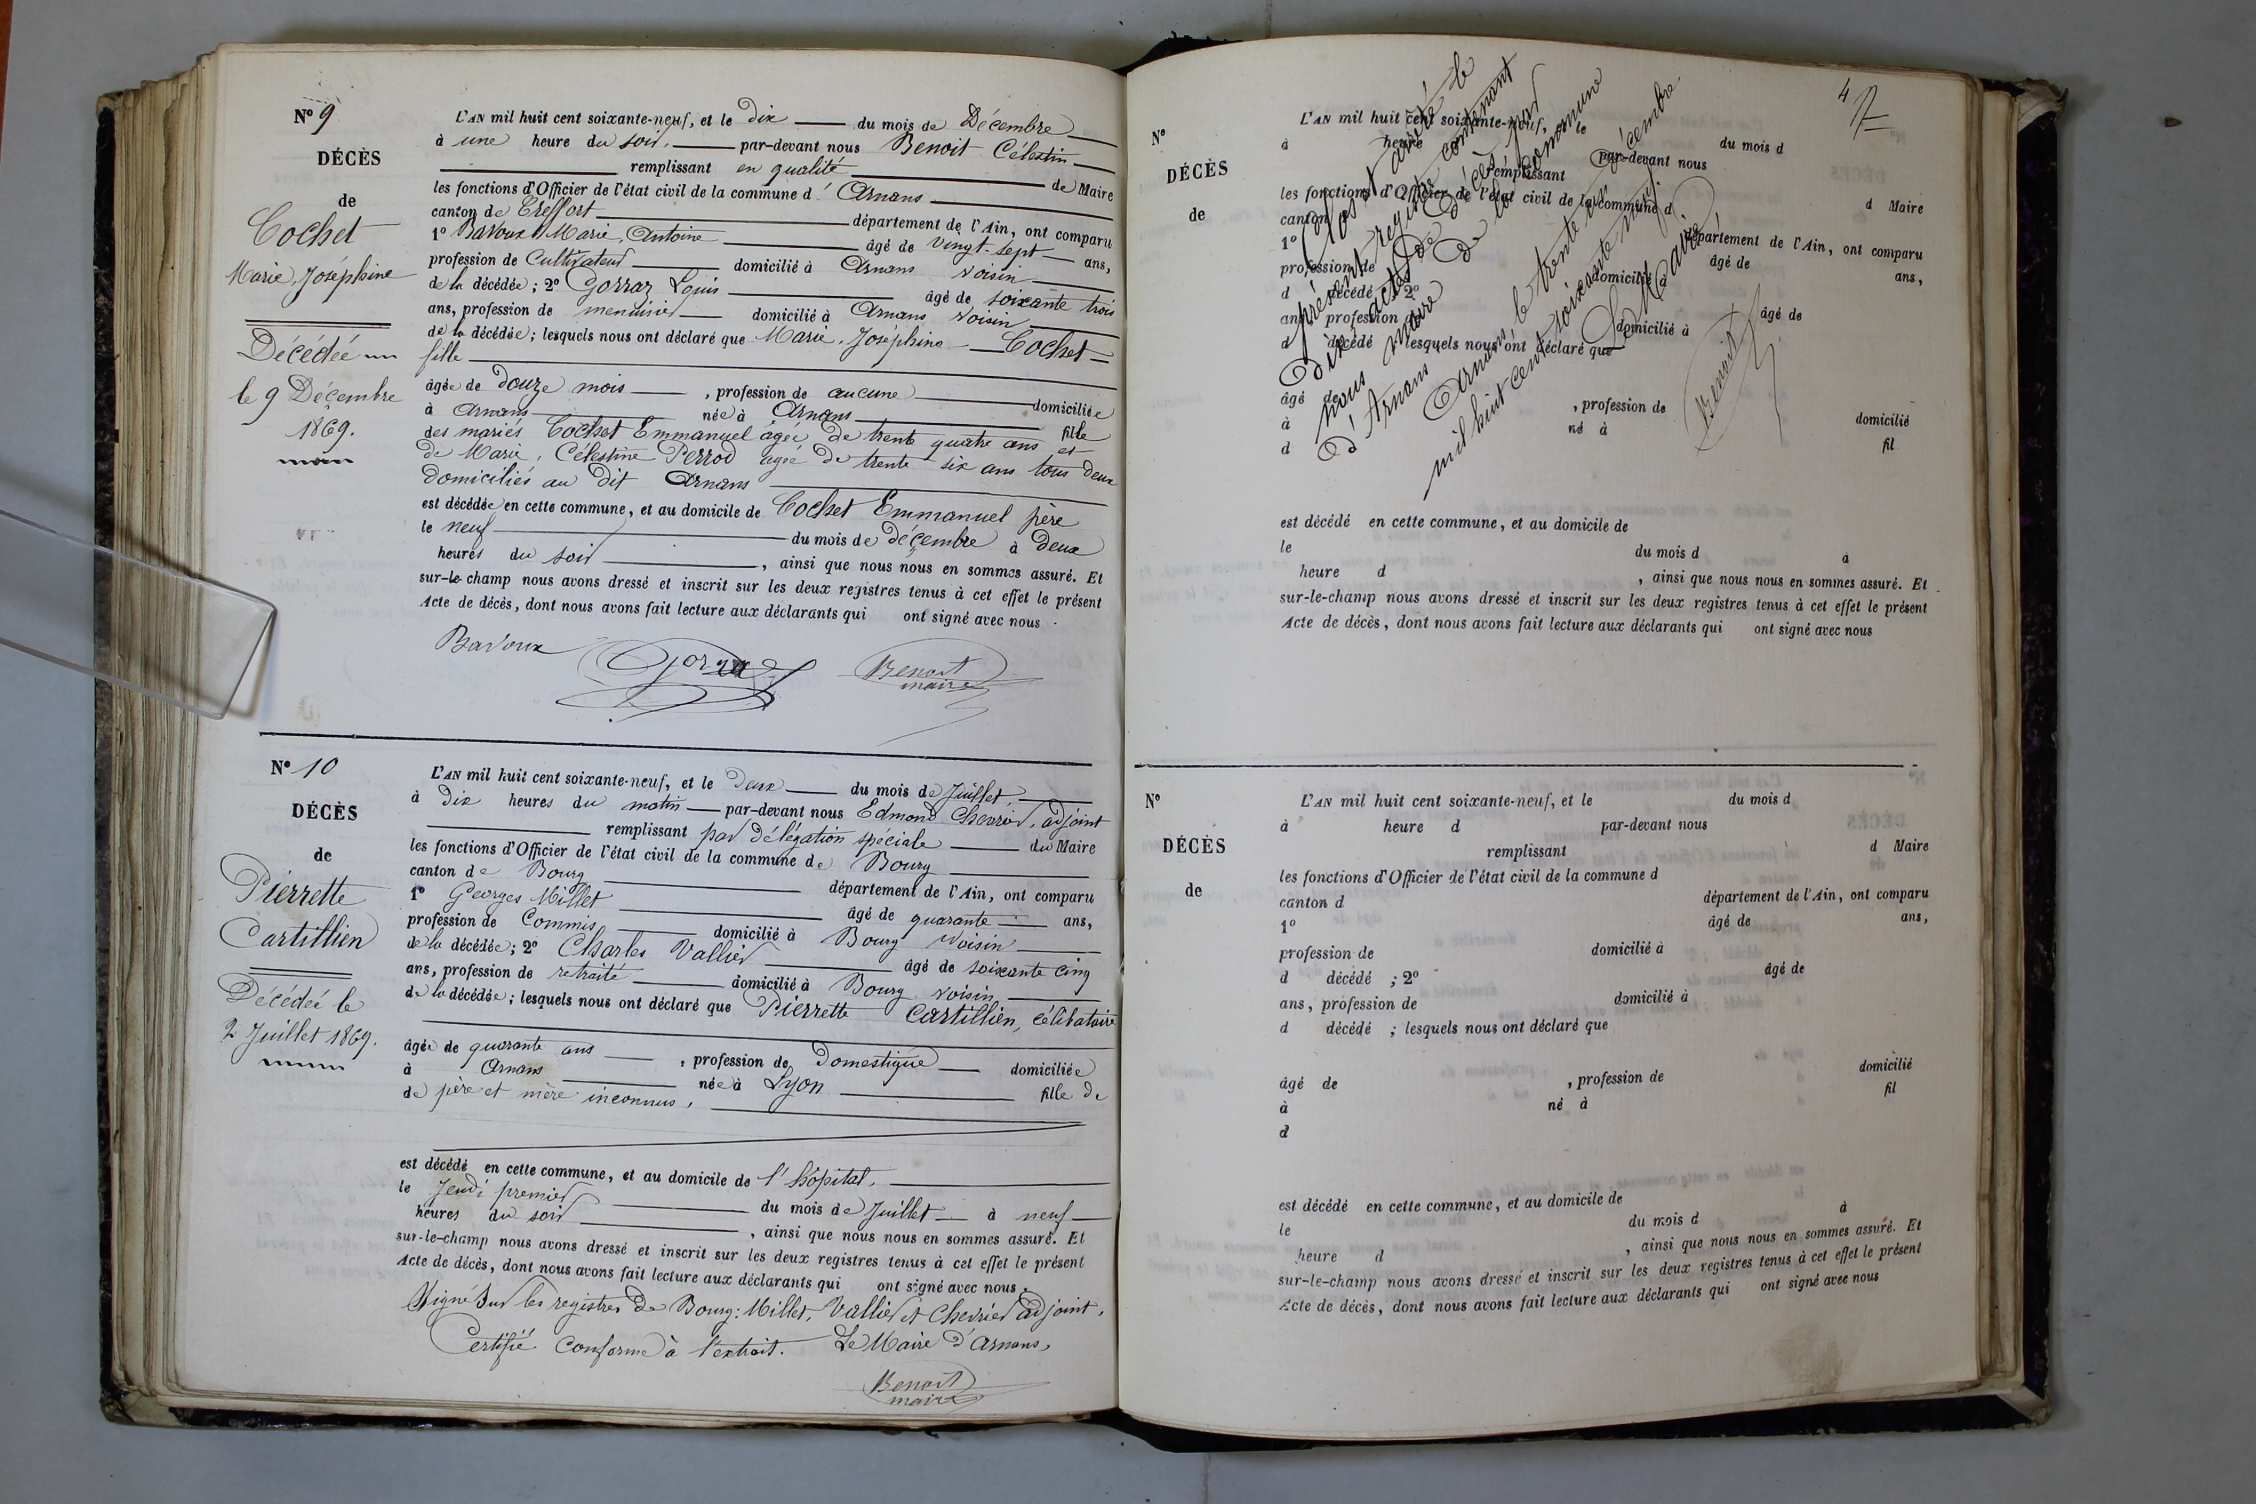 N° 9
DÉCÈS
de
Cochet
Marie, Joséphine
Décédée
le 9 Décembre
1869.
L'AN mil huit cent soixante-neuf, et le dix du mois de Décembre
à une heure du soir, par-devant nous Benoit Célestin
remplissant en qualité de Maire
les fonctions d'Officier de l'état civil de la commune d' Arnans
canton de Treffort département de l'Ain, ont comparu
1° Bavoux Marie, Antoine âgé de vingt-sept ans,
profession de Cultivateur domicilié à Arnans voisin
de la décédée; 2° Gorraz Louis âgé de soixante trois
ans, profession de menuisier domicilié à Arnans voisin
de la décédée; lesquels nous ont déclaré que Marie, Joséphine Cochet
fille
âgée de douze mois, profession de aucune domiciliée
à Arnans née à Arnans fille
des mariés Cochet Emmanuel âgé de trente quatre ans et
de Marie, Célestine Perrod âgée de trente six ans tous deux
domiciliés au dit Arnans
est décédée en cette commune, et au domicile de Cochet Emmanuel père
le neuf du mois de décembre à deux
heures du soir, ainsi que nous nous en sommes assuré. Et
sur-le-champ nous avons dressé et inscrit sur les deux registres tenus à cet effet le présent
Acte de décès, dont nous avons fait lecture aux déclarants qui ont signé avec nous.
Bavoux Gorraz Benoit
maire
N° 10
DÉCÈS
de
Pierrette
Cartillien
Décédée le
2 Juillet 1869.
L'AN mil huit cent soixante-neuf, et le deux du mois de Juillet,
à dix heures du matin par-devant nous Edmond Chevrier, adjoint
remplissant par délégation spéciale du Maire
les fonctions d'Officier de l'état civil de la commune de Bourg
canton de Bourg département de l'Ain, ont comparu
1° Georges Millet âgé de quarante ans,
profession de Commis domicilié à Bourg voisin
de la décédée; 2° Charles Vallier âgé de soixante cinq
ans, profession de retraité domicilié à Bourg voisin
de la décédée; lesquels nous ont déclaré que Pierrette Cartillien, célibataire
âgée de quarante ans, profession de Domestique domiciliée
à Arnans née à Lyon fille de
de père et mère inconnus,
est décédé en cette commune, et au domicile de l'hôpital,
le Jeudi premier du mois de Juillet à neuf
heures du soir, ainsi que nous nous en sommes assuré. Et
sur-le-champ nous avons dressé et inscrit sur les deux registres tenus à cet effet le présent
Acte de décès, dont nous avons fait lecture aux déclarants qui ont signé avec nous.
Signé sur les registres de Bourg: Millet, Vallier et Chevrier adjoint.
Certifié conforme à l'extrait. Le Maire d'Arnans,
Benoit
maire
4
N°
DÉCÈS
de
L'AN mil huit cent soixante-neuf, et le du mois d
à heure d par-devant nous
remplissant d Maire
les fonctions d'Officier de l'état civil de la commune d
canton d département de l'Ain, ont comparu
1° âgé de ans,
profession de domicilié à
d décédé ; 2° âgé de
ans, profession de domicilié à
d décédé ; lesquels nous ont déclaré que
âgé de , profession de domicilié
à né à fil
d
Clos et arrêté le
présent registre contenant
Dix actes de Décès par
nous maire de la commune
d'Arnans.
Arnans, le trente un Décembre
mil huit cent soixante neuf.
Le Maire
Benoit
est décédé en cette commune, et au domicile de
le du mois d à
heure d , ainsi que nous nous en sommes assuré. Et
sur-le-champ nous avons dressé et inscrit sur les deux registres tenus à cet effet le présent
Acte de décès, dont nous avons fait lecture aux déclarants qui ont signé avec nous
N°
DÉCÈS
de
L'AN mil huit cent soixante-neuf, et le du mois d
à heure d par-devant nous
remplissant d Maire
les fonctions d'Officier de l'état civil de la commune d
canton d département de l'Ain, ont comparu
1° âgé de ans,
profession de domicilié à
d décédé ; 2° âgé de
ans, profession de domicilié à
d décédé ; lesquels nous ont déclaré que
âgé de , profession de domicilié
à né à fil
d
est décédé en cette commune, et au domicile de
le du mois d à
heure d , ainsi que nous nous en sommes assuré. Et
sur-le-champ nous avons dressé et inscrit sur les deux registres tenus à cet effet le présent
Acte de décès, dont nous avons fait lecture aux déclarants qui ont signé avec nous